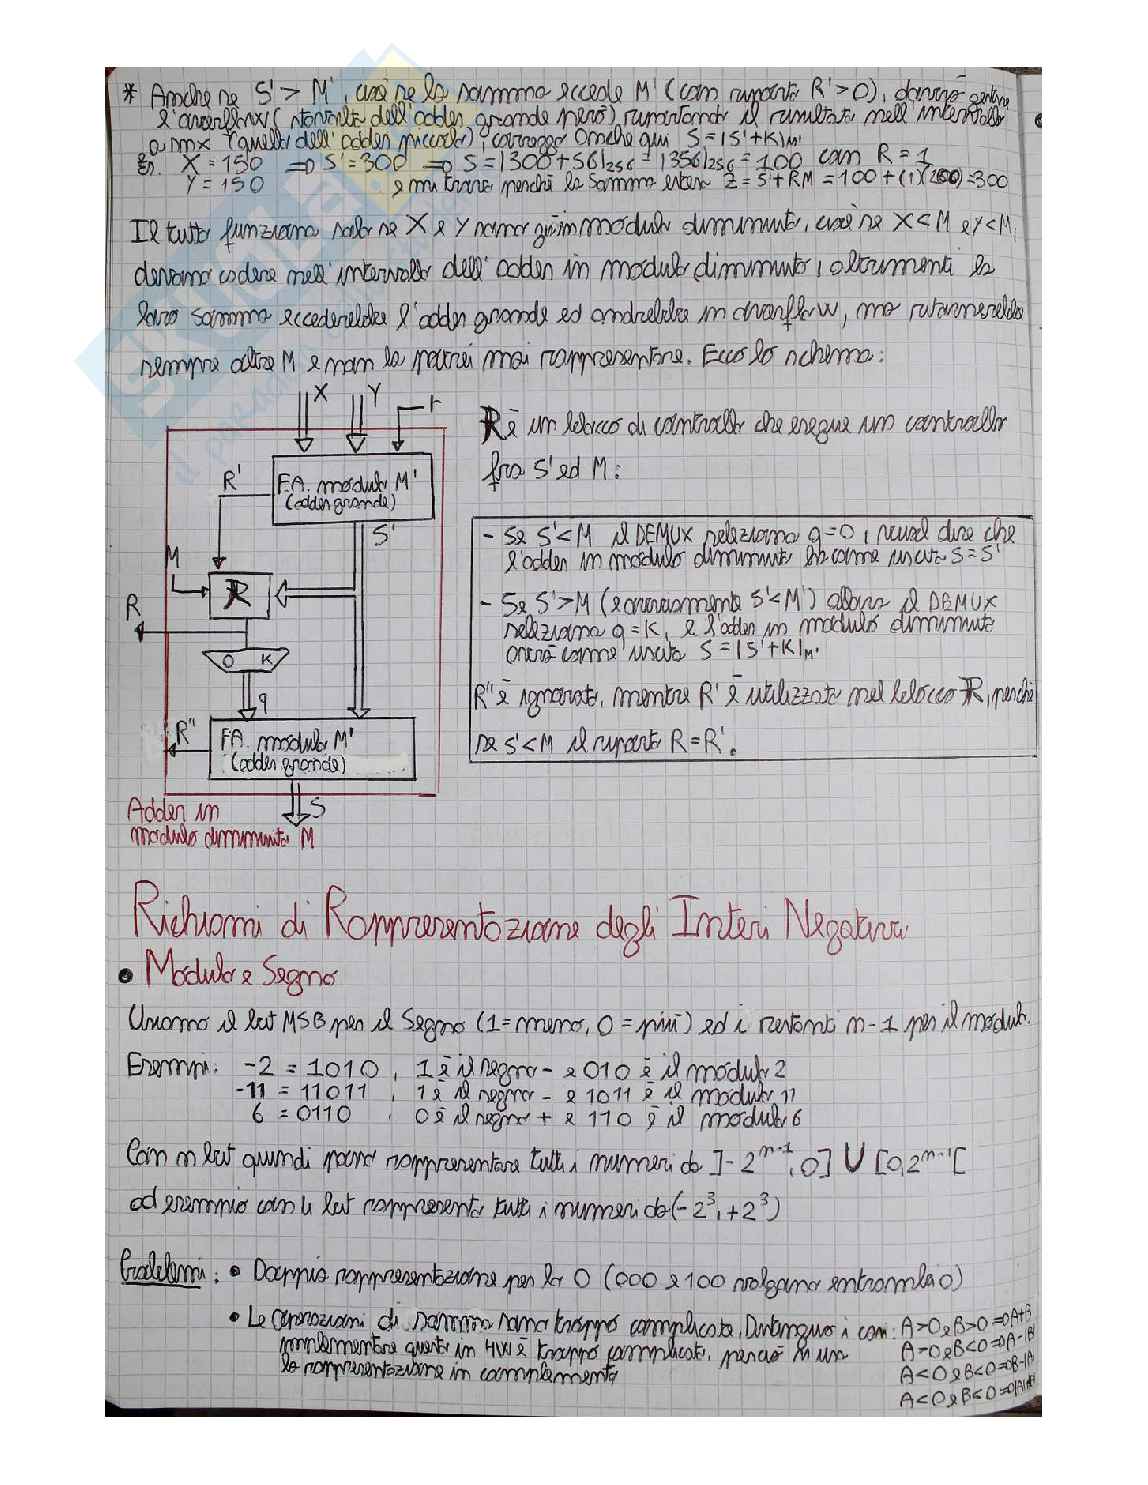 * Anche se S' > M', cioè se la somma eccede M' (con riporto R' > 0), dovrò gestire
l'overflow (stavolta dell'adder grande però), riportando il risultato nell'intervallo
a mx (quello dell'adder piccolo); correggo anche qui S = |S'+K|M'
Es. X = 150 ⇒ S' = 300 ⇒ S = |300+56|256 = |356|256 = 100 con R = 1
Y = 150 e mi trovo perché la somma intera Z = S + RM = 100 + (1)(200) = 300
Il tutto funziona solo se X e Y sono già in modulo diminuito, cioè se X < M e Y < M
devono cadere nell'intervallo dell'adder in modulo diminuito, altrimenti la
loro somma eccederebbe l'adder grande ed andrebbe in overflow, ma ritornerebbe
sempre oltre M e non la potrei mai rappresentare. Ecco lo schema:
X Y r
R è un blocco di controllo che esegue un controllo
fra S' ed M:
R'
F.A. modulo M'
(adder grande)
S'
M
R
R
0 K
q
R''
F.A. modulo M'
(adder grande)
S
Adder in
modulo diminuito M
- Se S' < M il DEMUX seleziona q = 0, vuol dire che
l'adder in modulo diminuito ha come uscita S = S'
- Se S' > M (e ovviamente S' < M') allora il DEMUX
seleziona q = K, e l'adder in modulo diminuito
avrà come uscita S = |S'+K|M'
R'' è ignorato, mentre R' è utilizzato nel blocco R, perché
se S' < M il riporto R = R'.
Richiami di Rappresentazione degli Interi Negativi
• Modulo e Segno
Usiamo il bit MSB per il Segno (1 = meno, 0 = più) ed i restanti n-1 per il modulo.
Esempi: -2 = 1010, 1 è il segno - e 010 è il modulo 2
-11 = 11011, 1 è il segno - e 1011 è il modulo 11
6 = 0110, 0 è il segno + e 110 è il modulo 6
Con n bit quindi posso rappresentare tutti i numeri da ]-2^n-1, 0] U [0, 2^n-1[
ad esempio con 4 bit rappresento tutti i numeri da (-2^3, +2^3)
Problemi: • Doppia rappresentazione per lo 0 (000 e 100 valgono entrambi 0)
• Le operazioni di somma sono troppo complicate. Distinguo i casi: A>0 e B>0 ⇒ A+B
implementare questi in HW è troppo complicato, perciò si usa A>0 e B<0 ⇒ A-|B|
la rappresentazione in complementi A<0 e B<0 ⇒ B-|A|
A<0 e B<0 ⇒